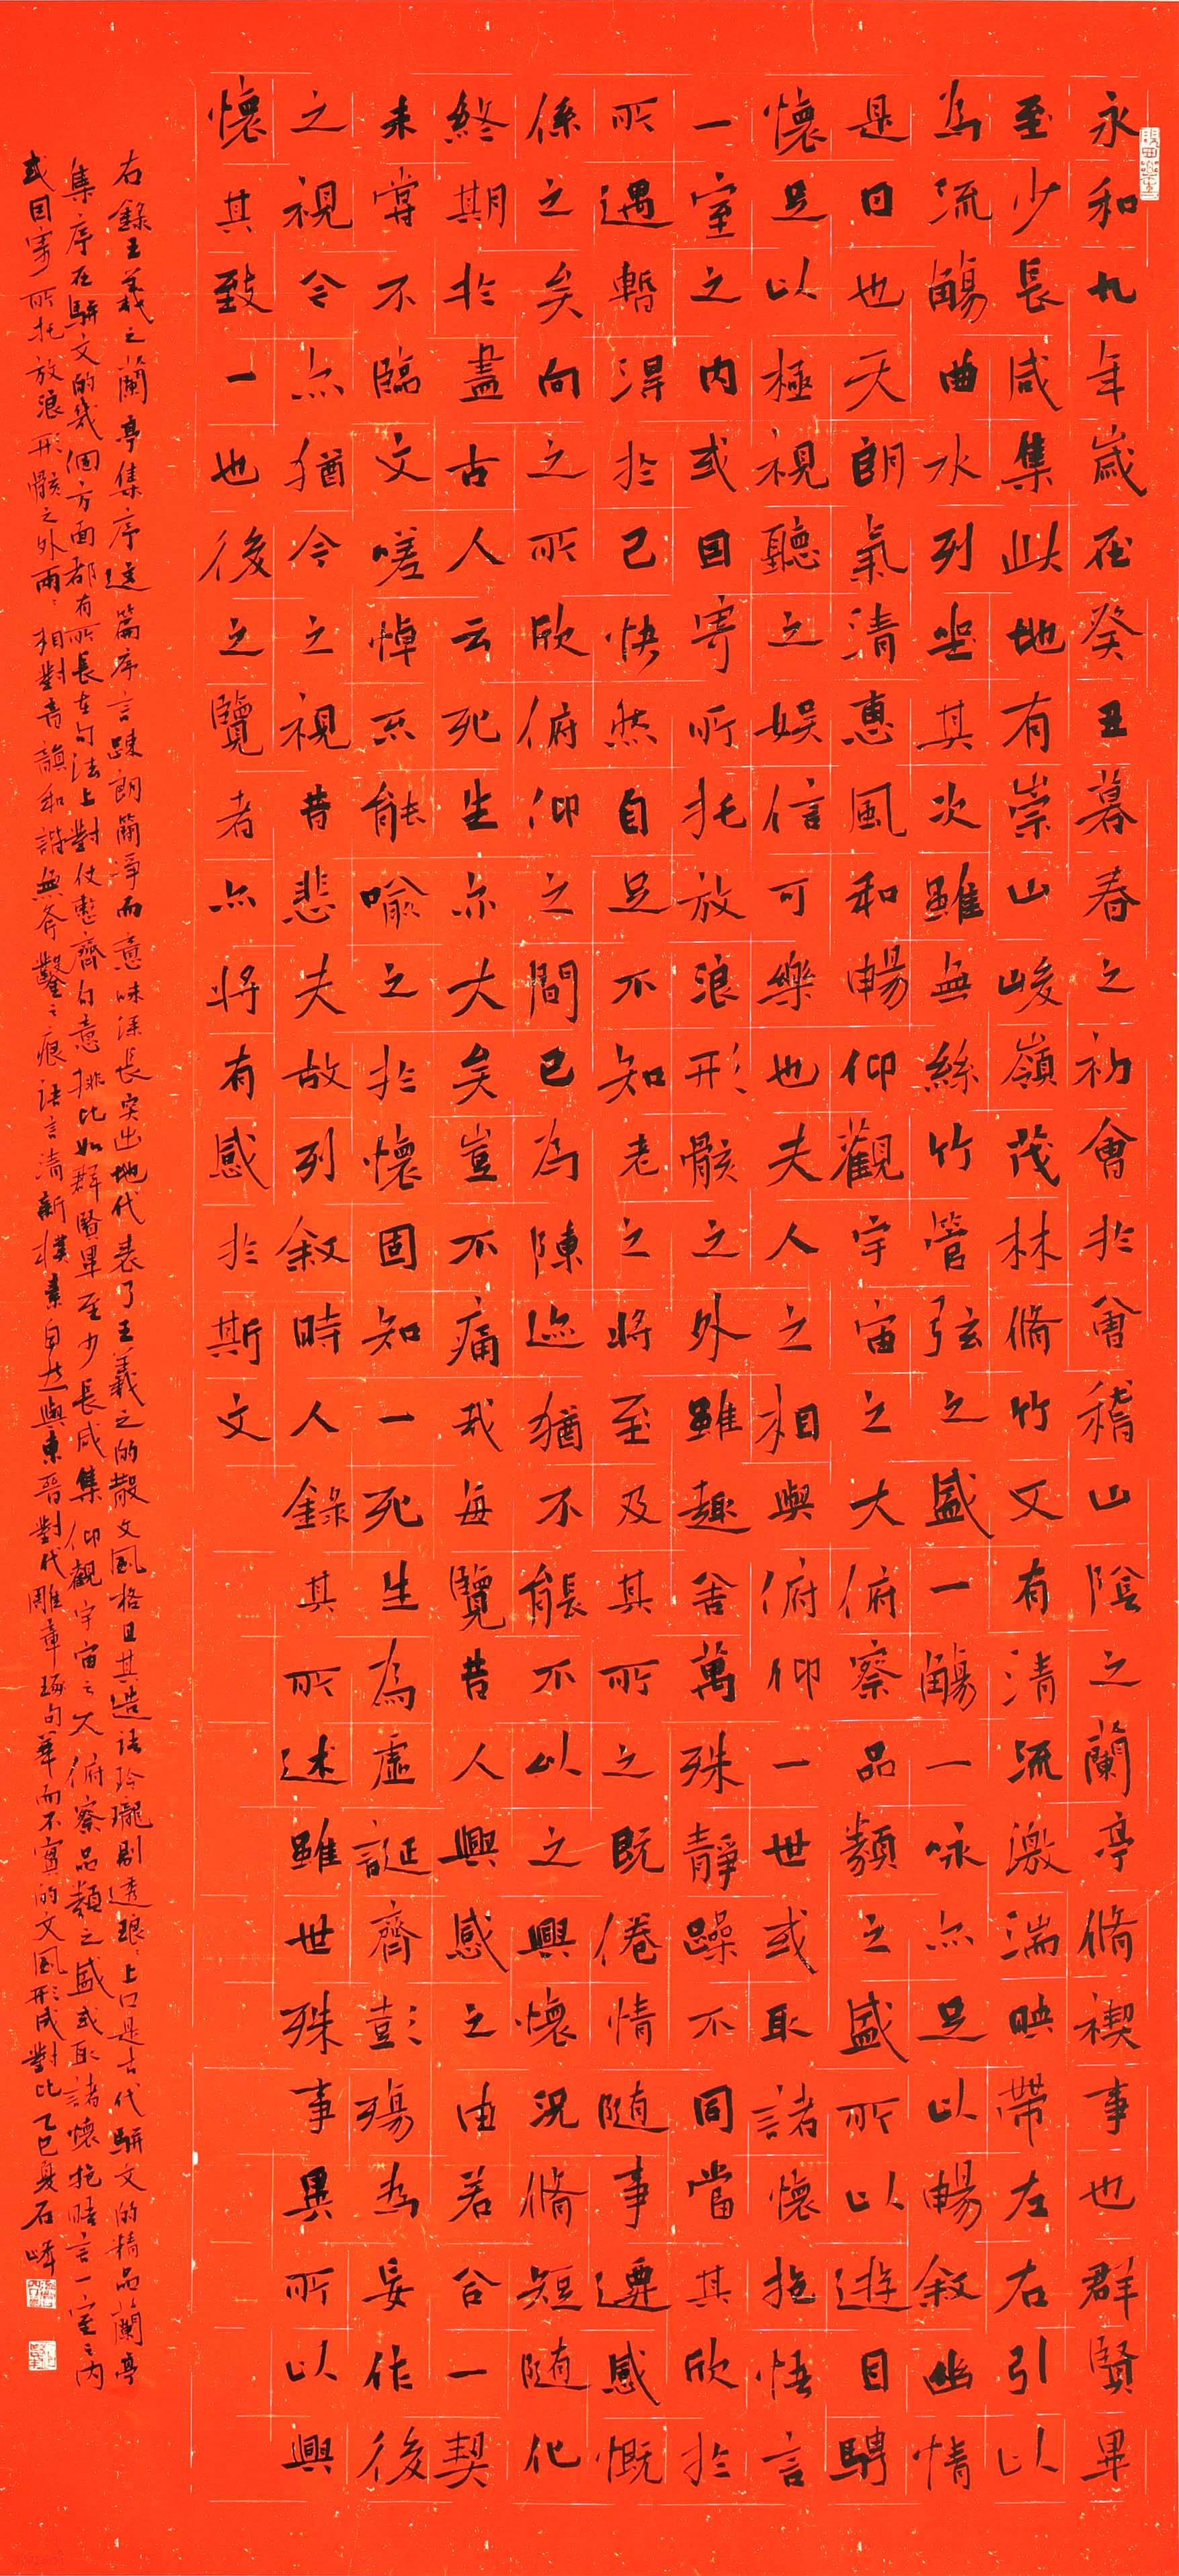 永和九年歲在癸丑暮春之初會於會稽山陰之蘭亭脩禊事也群賢畢
至少長咸集此地有崇山峻嶺茂林脩竹又有清流激湍映帶左右引以
為流觴曲水列坐其次雖無絲竹管弦之盛一觴一咏亦足以暢敘幽情
是日也天朗氣清惠風和暢仰觀宇宙之大俯察品類之盛所以遊目騁
懷足以極視聽之娛信可樂也夫人之相與俯仰一世或取諸懷抱悟言
一室之內或因寄所托放浪形骸之外雖趣舍萬殊靜躁不同當其欣於
所遇暫得於己快然自足不知老之將至及其所之既倦情随事遷感慨
係之矣向之所欣俯仰之間已為陳迹猶不能不以之興懷況脩短随化
終期於盡古人云死生亦大矣豈不痛哉每覽昔人興感之由若合一契
未嘗不臨文嗟悼不能喻之於懷固知一死生為虛誕齊彭殤為妄作後
之視今亦猶今之視昔悲夫故列敘時人錄其所述雖世殊事異所以興
懷其致一也後之覽者亦將有感於斯文
右錄王羲之蘭亭集序這篇序言疎朗簡淨而意味深長突出地代表了王羲之的散文風格且其造語玲瓏剔透琅々上口是古代駢文的精品蘭亭
集序在駢文的幾個方面都有所長在句法上對仗整齊句意排比如群賢畢至少長咸集仰觀宇宙之大俯察品類之盛或取諸懷抱晤言一室之內
或因寄所托放浪形骸之外兩々相對音韻和諧無斧鑿之痕語言清新樸素自然與東晉對代雕章琢句華而不實的文風形成對比乙巳夏石峰